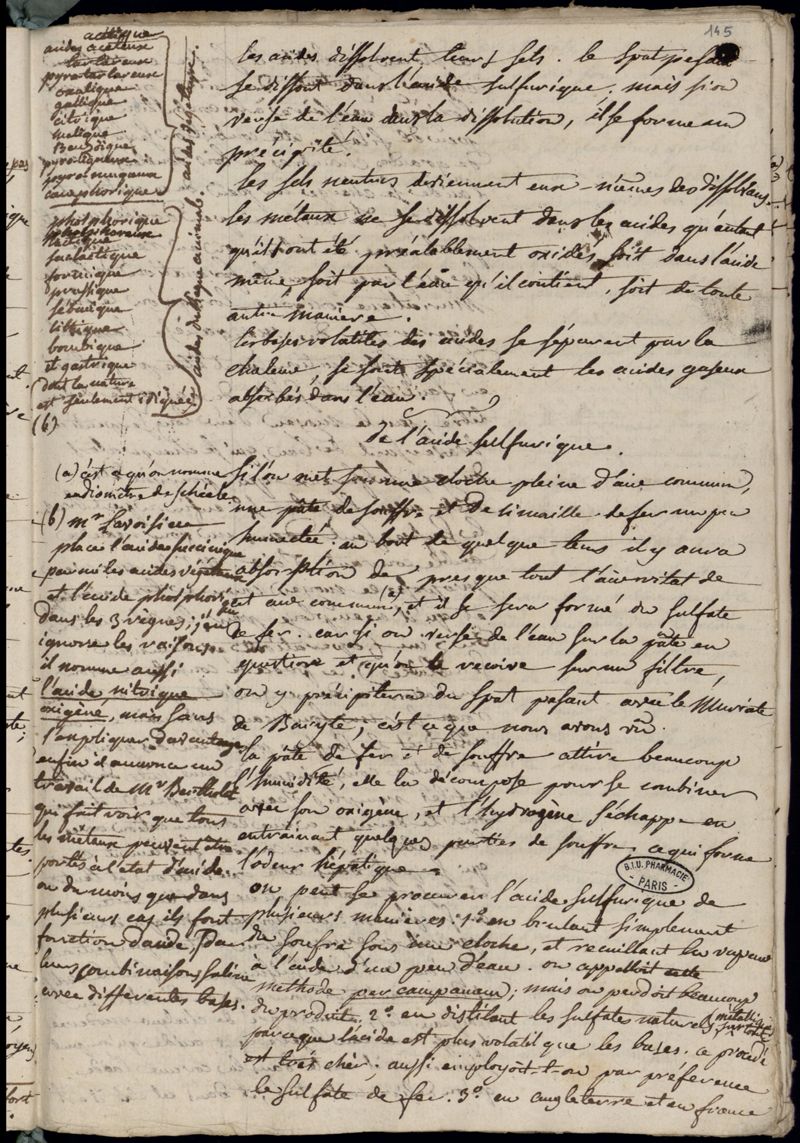 145
acétique
acides aceteux
tartareux
pyrotartareux
oxalique
gallique
citrique
malique
Benzoïque
pyroligneux
pyromuqueux
camphorique
acides végétaux.
phosphorique
phosphoreux
lactique
saclactique
formique
prussique
sébacique
lithique
bombique
et gastrique
dont la nature
est seulement indiquée
(b)
acides du règne animale.
les acides dissolvent leurs sels. le spat pesant
se dissout dans l'acide sulfurique. mais si on
verse de l'eau dans la dissolution, il se forme un
précipité.
les sels neutres deviennent eux-mêmes des dissolvans.
les métaux ne se dissolvent dans les acides qu'autant
qu'ils ont été préalablement oxidés soit dans l'acide
même, soit par l'eau qu'il contient, soit de toute
autre manière.
les bases volatiles des acides se séparent par la
chaleur, ce sont spécialement les acides gaseux
absorbés dans l'eau.
de l'acide sulfurique.
si l'on met sous une cloche pleine d'air commun,
une pâte de souffre et de limaille de fer un peu
humectée. au bout de quelque tems il y aura
absorption de presque tout l'air vital de
cet air commun (a), et il se sera formé du sulfate
de fer. car si on verse de l'eau sur la pâte en
question et qu'on le reçoive sur un filtre,
on y précipitera du spat pesant avec le Muriate
de Baryte, c'est ce que nous avons vu.
la pâte de fer et de souffre attire beaucoup
l'humidité, elle la décompose pour se combiner
avec son oxigène, et l'hydrogène s'échappe en
entrainant quelques parties de souffre. ce qui forme
l'odeur hépatique.
on peut se procurer l'acide sulfurique de
plusieurs manières: 1.º en brulant simplement
du soufre sous une cloche, et recuillant la vapeur
à l'aide d'un peu d'eau. on appelloit cette
methode per campanam; mais on perdoit beaucoup
du produit, 2.º en distilant les sulfate naturels, métalliq. surtout
parceque l'acide est plus volatil que les bases. ce procédé
est très cher; aussi employoit-t-on par préférence
le sulfate de fer. 3.º en angleterre et en france
(a) c'est ce qu'on nomme
eudiomètre de schéele.
(b) mr Lavoisier
place l'acide succinique
parmi les acides végétaux
et l'acide phosphorique
dans les 3 règnes; j'en
ignore les raisons.
il nomme aussi
l'acide nitrique
oxigéné, mais sans
l'expliquer davantage
enfin il annonce un
travail de Mr Berthollet
qui fait voir que tous
les métaux peuvent être
portés à l'état d'acide.
ou du moins que dans
plusieurs cas ils font
fonction d'acide dans
leurs combinaisons salines
avec differentes bases.
B.I.U. PHARMACIE
PARIS